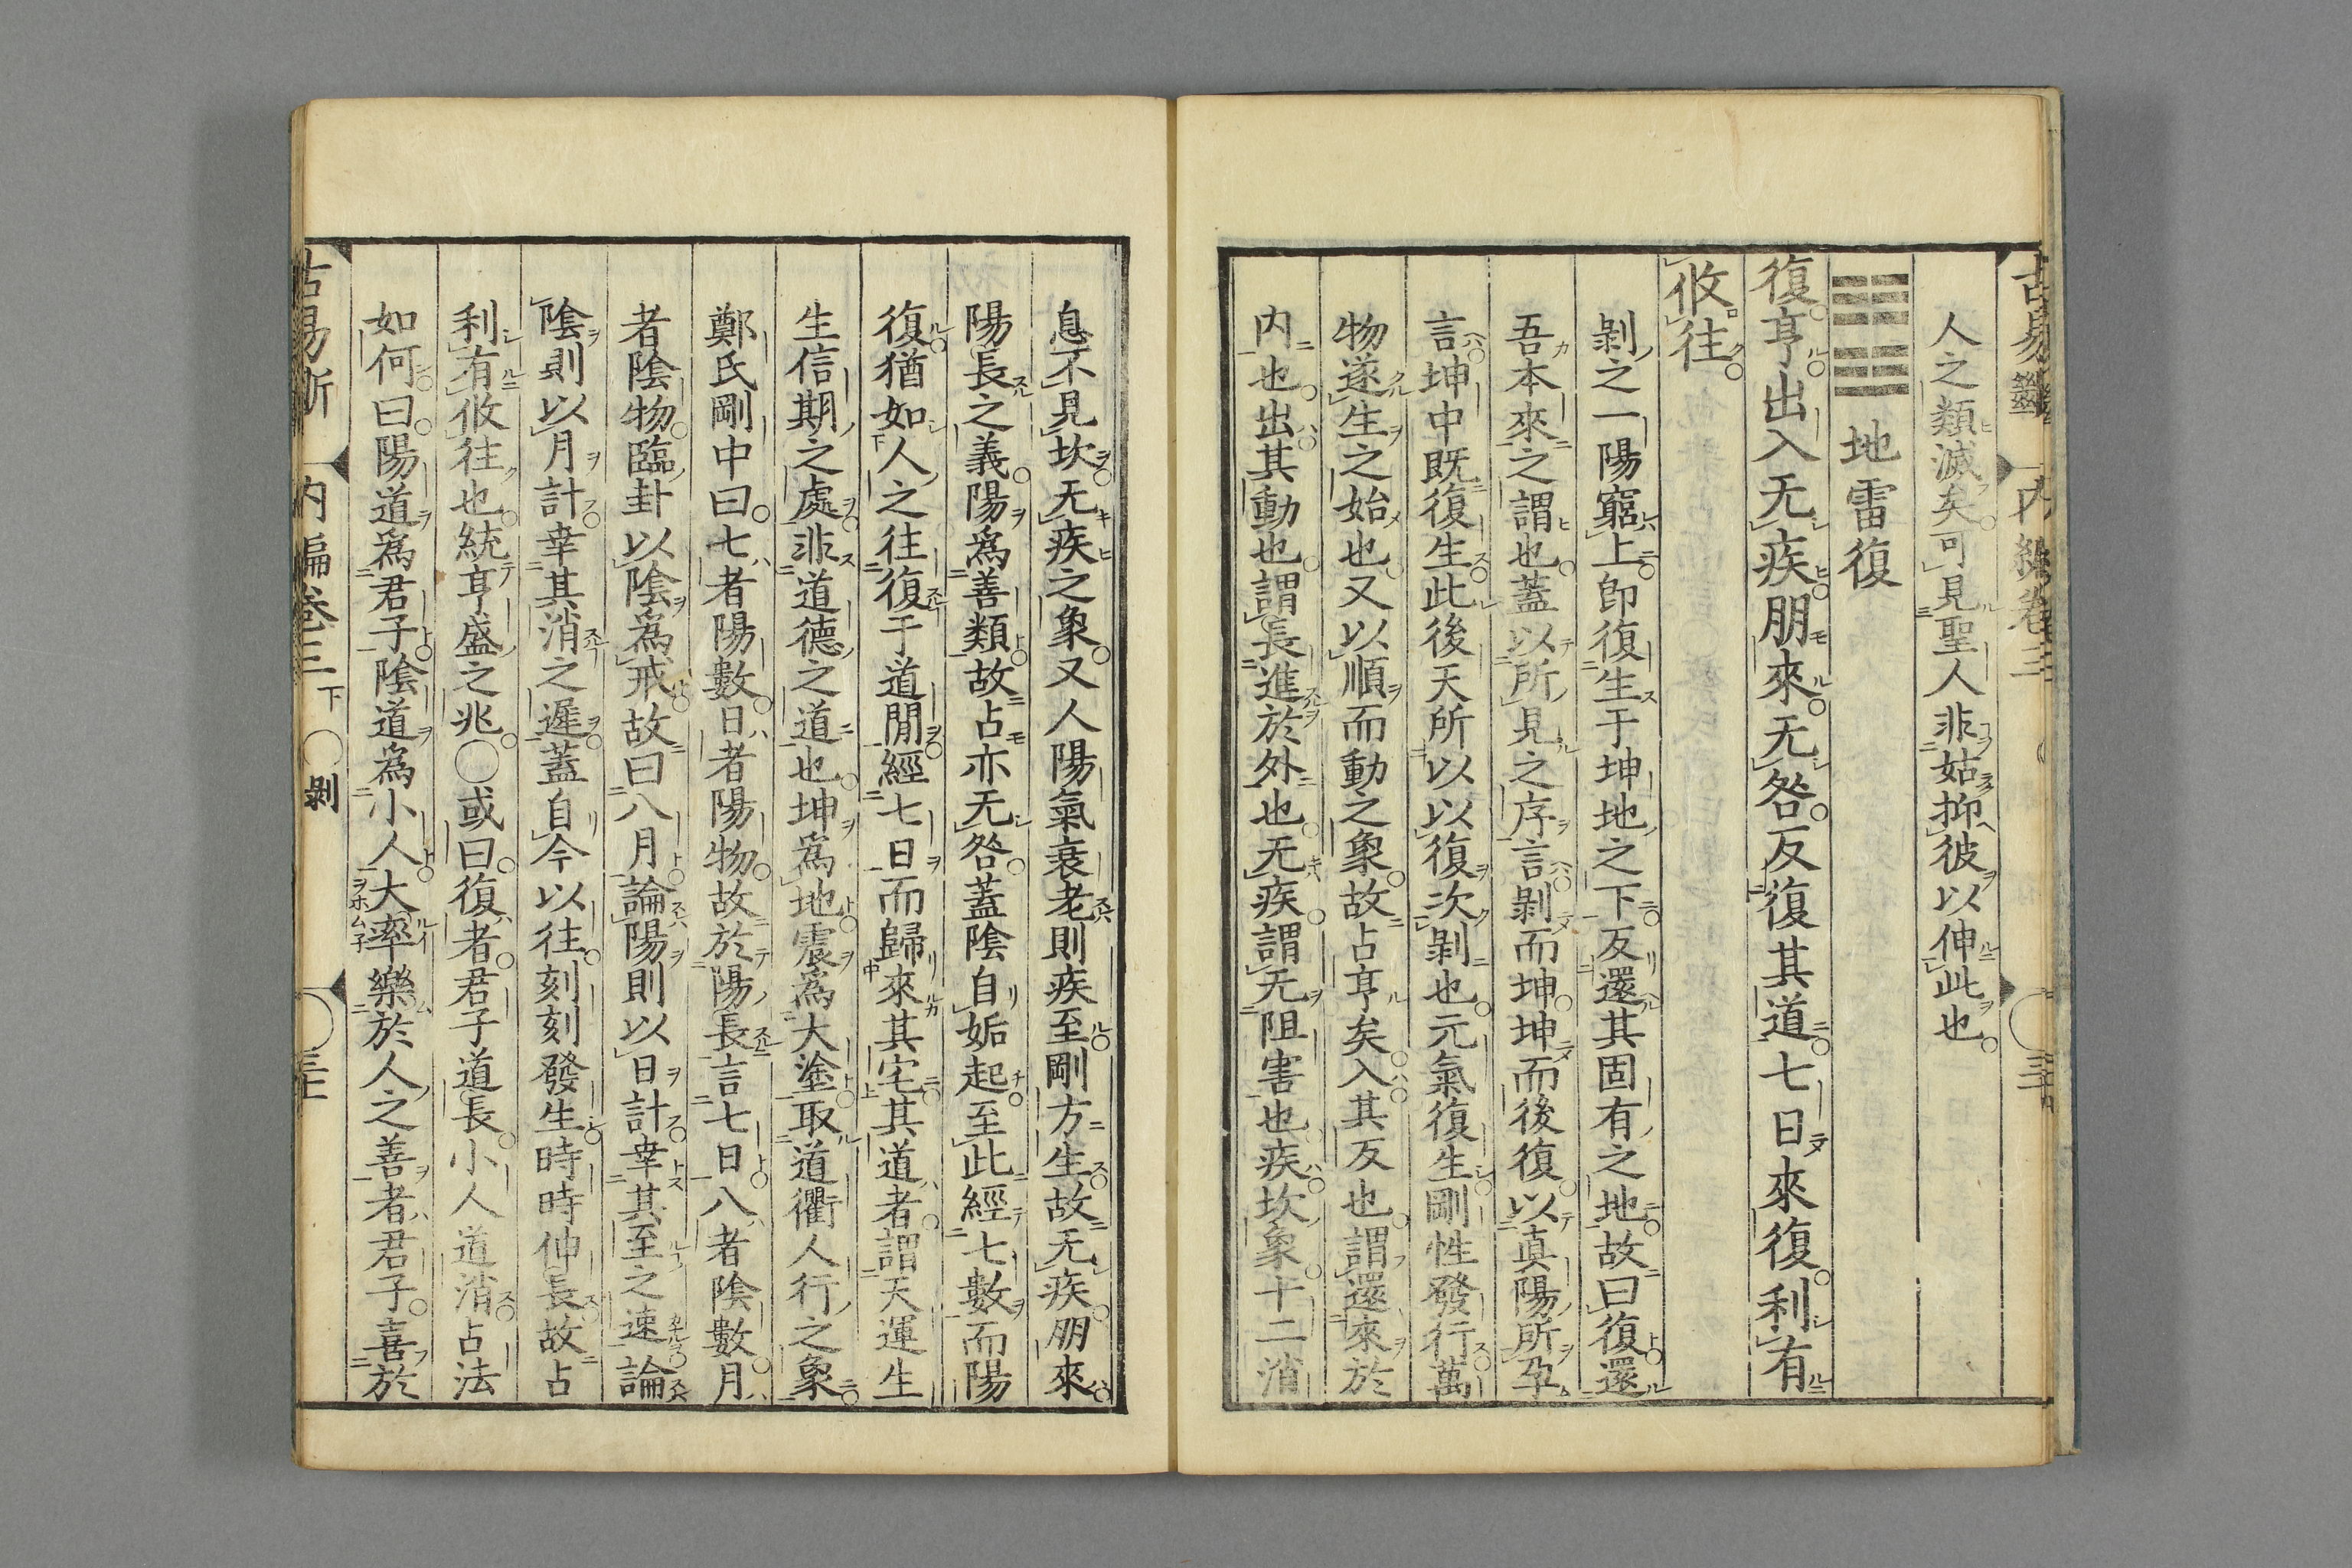 人之類滅矣可見聖人非姑抑彼以伸此也
地雷復
復亨出入无疾朋來无咎反復其道七日來復利有
攸往
剝之一陽窮上卽復生于坤地之下反還其固有之地故曰復還
吾本來之謂也蓋以所見之序言剝而坤坤而後復以真陽所孕
言坤中既復生此後天所以以復次剝也元氣復生剛性發行萬
物遂生之始也又以順而動之象故占亨矣入其反也謂還來於
内也出其動也謂長進於外也无疾謂无阻害也疾坎象十二消
息不見坎无疾之象又人陽氣衰老則疾至剛方生故无疾朋來
陽長之義陽爲善類故占亦无咎蓋陰自姤起至此經七數而陽
復猶如人之往復于道閒經七日而歸來其宅其道者謂天運生
生信期之處非道德之道也坤爲地震爲大塗取道衢人行之象
鄭氏剛中曰七者陽數日者陽物故於陽長言七日八者陰數月
者陰物臨卦以陰爲戒故曰八月論陽則以日計幸其至之速論
陰則以月計幸其消之遲蓋自今以往刻刻發生時時伸長故占
利有攸往也統亨盛之兆○或曰復者君子道長小人道消占法
如何曰陽道爲君子陰道爲小人大率樂於人之善者君子喜於
古易斷 内編卷三 下 ○剝